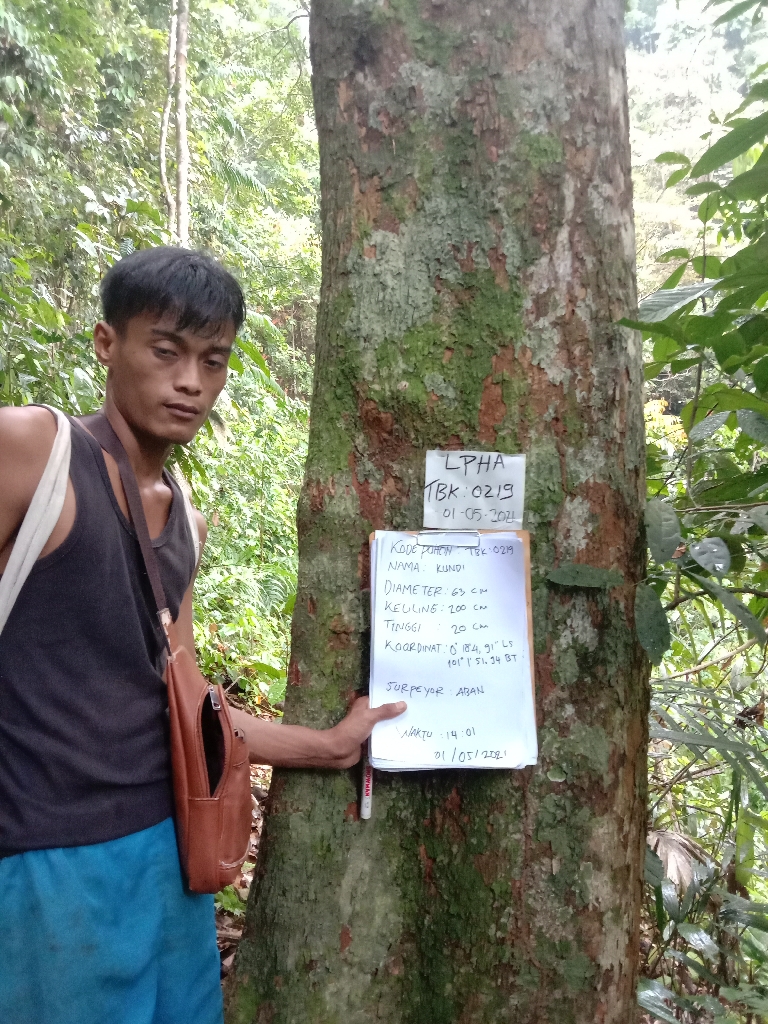 LPHA
TBK: 0219
01-05-2021
KODE POHON : TBK: 0219
NAMA : KUNDI
DIAMETER : 63 cm
KELILING : 200 cm
TINGGI : 20 cm
KOORDINAT : 0° 18'4, 91" LS
101° 1' 51.94 BT
SURPEYOR : ABAN
WAKTU : 14:01
01/05/2021
SNOWMAN